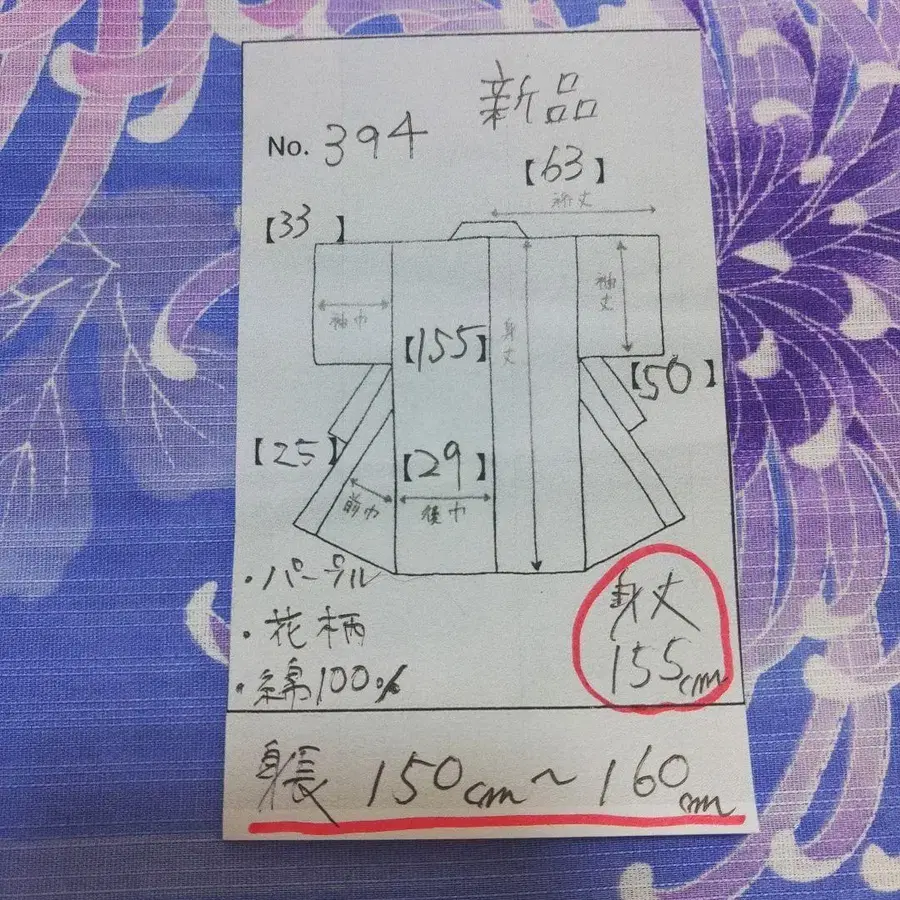 新品
No. 394
【63】
裄丈
【33 】
袖巾
袖丈
【155】
身丈
【50 】
【25】
【29】
前巾
後巾
・パープル
・花柄
・綿100%
身丈
155cm
身長 150cm~160cm